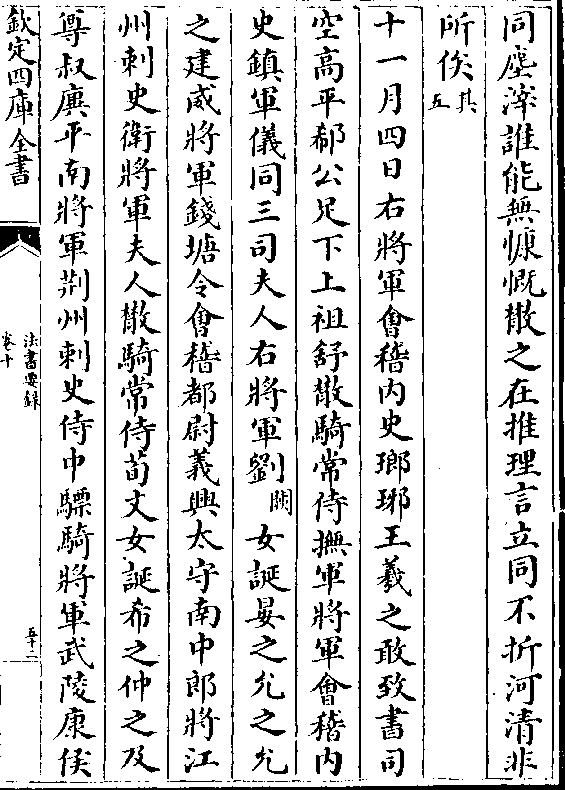 同塵滓誰能無慷慨散之在推理言立同不折河清非
所俟其五
十一月四日右將軍會稽内史瑯琊王羲之敢致書司
空高平郗公足下上祖舒散騎常侍撫軍將軍會稽内
史鎮軍儀同三司夫人右將軍劉闕女誕晏之允之允
之建威將軍錢塘令會稽都尉義興太守南中郎將江
州刺史衛將軍夫人散騎常侍荀文女誕希之仲之及
尊叔廙平南將軍荆州刺史侍中驃騎將軍武陵康侯
欽定四庫全書
法書要録
卷十
五十二